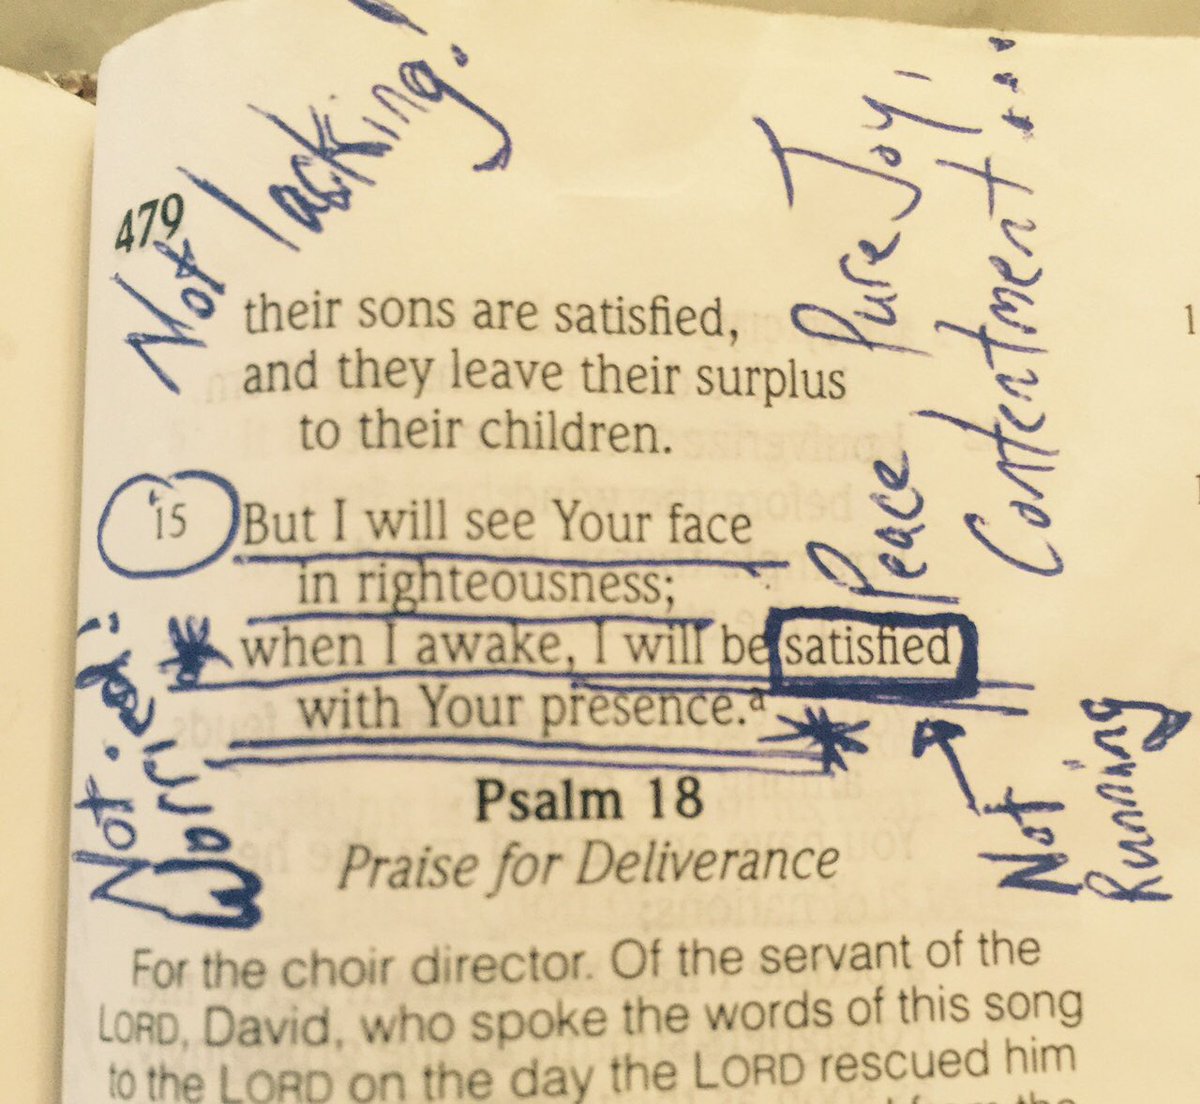 Not lacking!
479
their sons are satisfied,
and they leave their surplus
to their children.
15 But I will see Your face
in righteousness;
when I awake, I will be satisfied
with Your presence.a
Peace Pure Joy!
Contentment...
Not
Running
Not
Worried!
Psalm 18
Praise for Deliverance
For the choir director. Of the servant of the
LORD, David, who spoke the words of this song
to the LORD on the day the LORD rescued him
from the
1
1